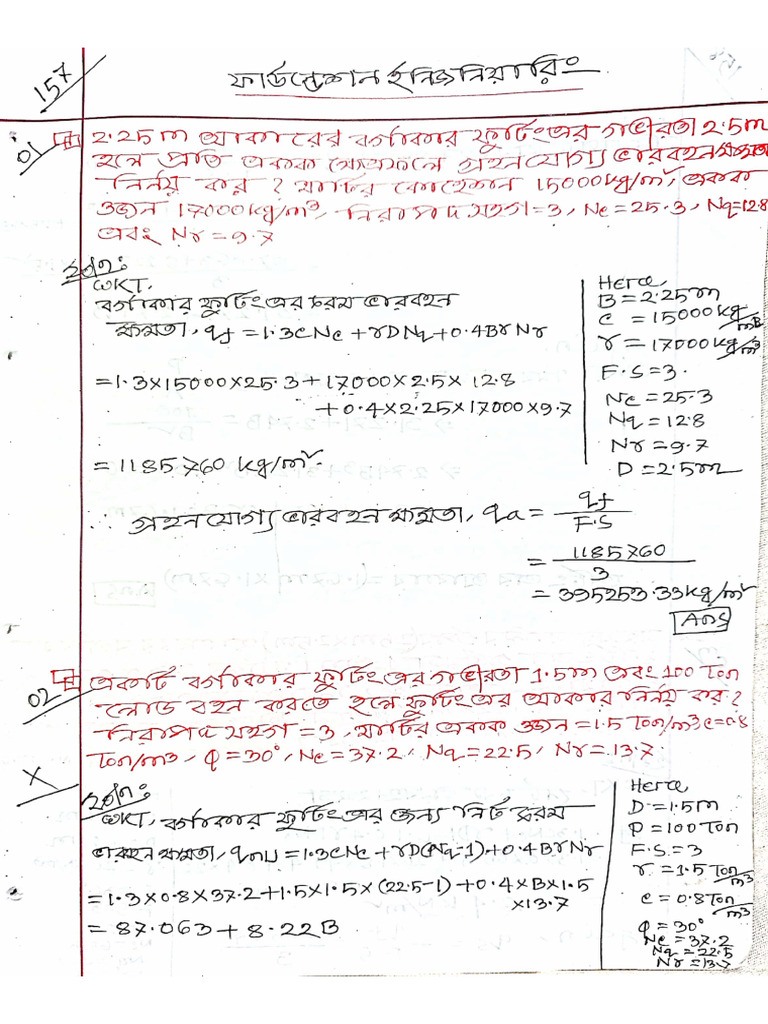 157
ফাউন্ডেশান ইনজিনিয়ারিং
01 2.25m আকারের বর্গাকার ফুটিংএর গভীরতা 2.5m
হলে প্রতি একক ক্ষেত্রফলে গ্রহনযোগ্য ভারবহন ক্ষমতা
নির্নয় কর? মাটির কোহেশান 15000kg/m², একক
ওজন 17000kg/m³, নিরাপদ সহগ=3, Nc=25.3, Nq=12.8
এবং Nr=9.7
WKT,
বর্গাকার ফুটিংএর চরম ভারবহন
ক্ষমতা, qf=1.3CNc+rDNq+0.4BrNr
=1.3×15000×25.3+17000×2.5×12.8
+0.4×2.25×17000×9.7
=1185760 kg/m²
Here,
B=2.25m
c=15000kg/m²
r=17000kg/m³
F.S=3.
Nc=25.3
Nq=12.8
Nr=9.7
D=2.5m
∴ গ্রহনযোগ্য ভারবহন ক্ষমতা, qa=qf/F.S
=1185760/3
=395253.33kg/m²
Ans
02 একটি বর্গাকার ফুটিংএর গভীরতা 1.5m এবং 100 Ton
লোড বহন করতে হলে ফুটিংএর আকার নির্নয় কর?
নিরাপদ সহগ=3, মাটির একক ওজন=1.5 Ton/m³ c=0.8
Ton/m³, φ=30°, Nc=37.2, Nq=22.5, Nr=13.7.
X
WKT, বর্গাকার ফুটিংএর জন্য নিট চরম
ভারবহন ক্ষমতা, qnu=1.3CNc+rD(Nq-1)+0.4BrNr
=1.3×0.8×37.2+1.5×1.5×(22.5-1)+0.4×B×1.5
×13.7
=87.063+8.22B
Here
D=1.5m
P=100Ton
F.S=3
r=1.5Ton/m³
c=0.8Ton/m³
φ=30°
Nc=37.2
Nq=22.5
Nr=13.7